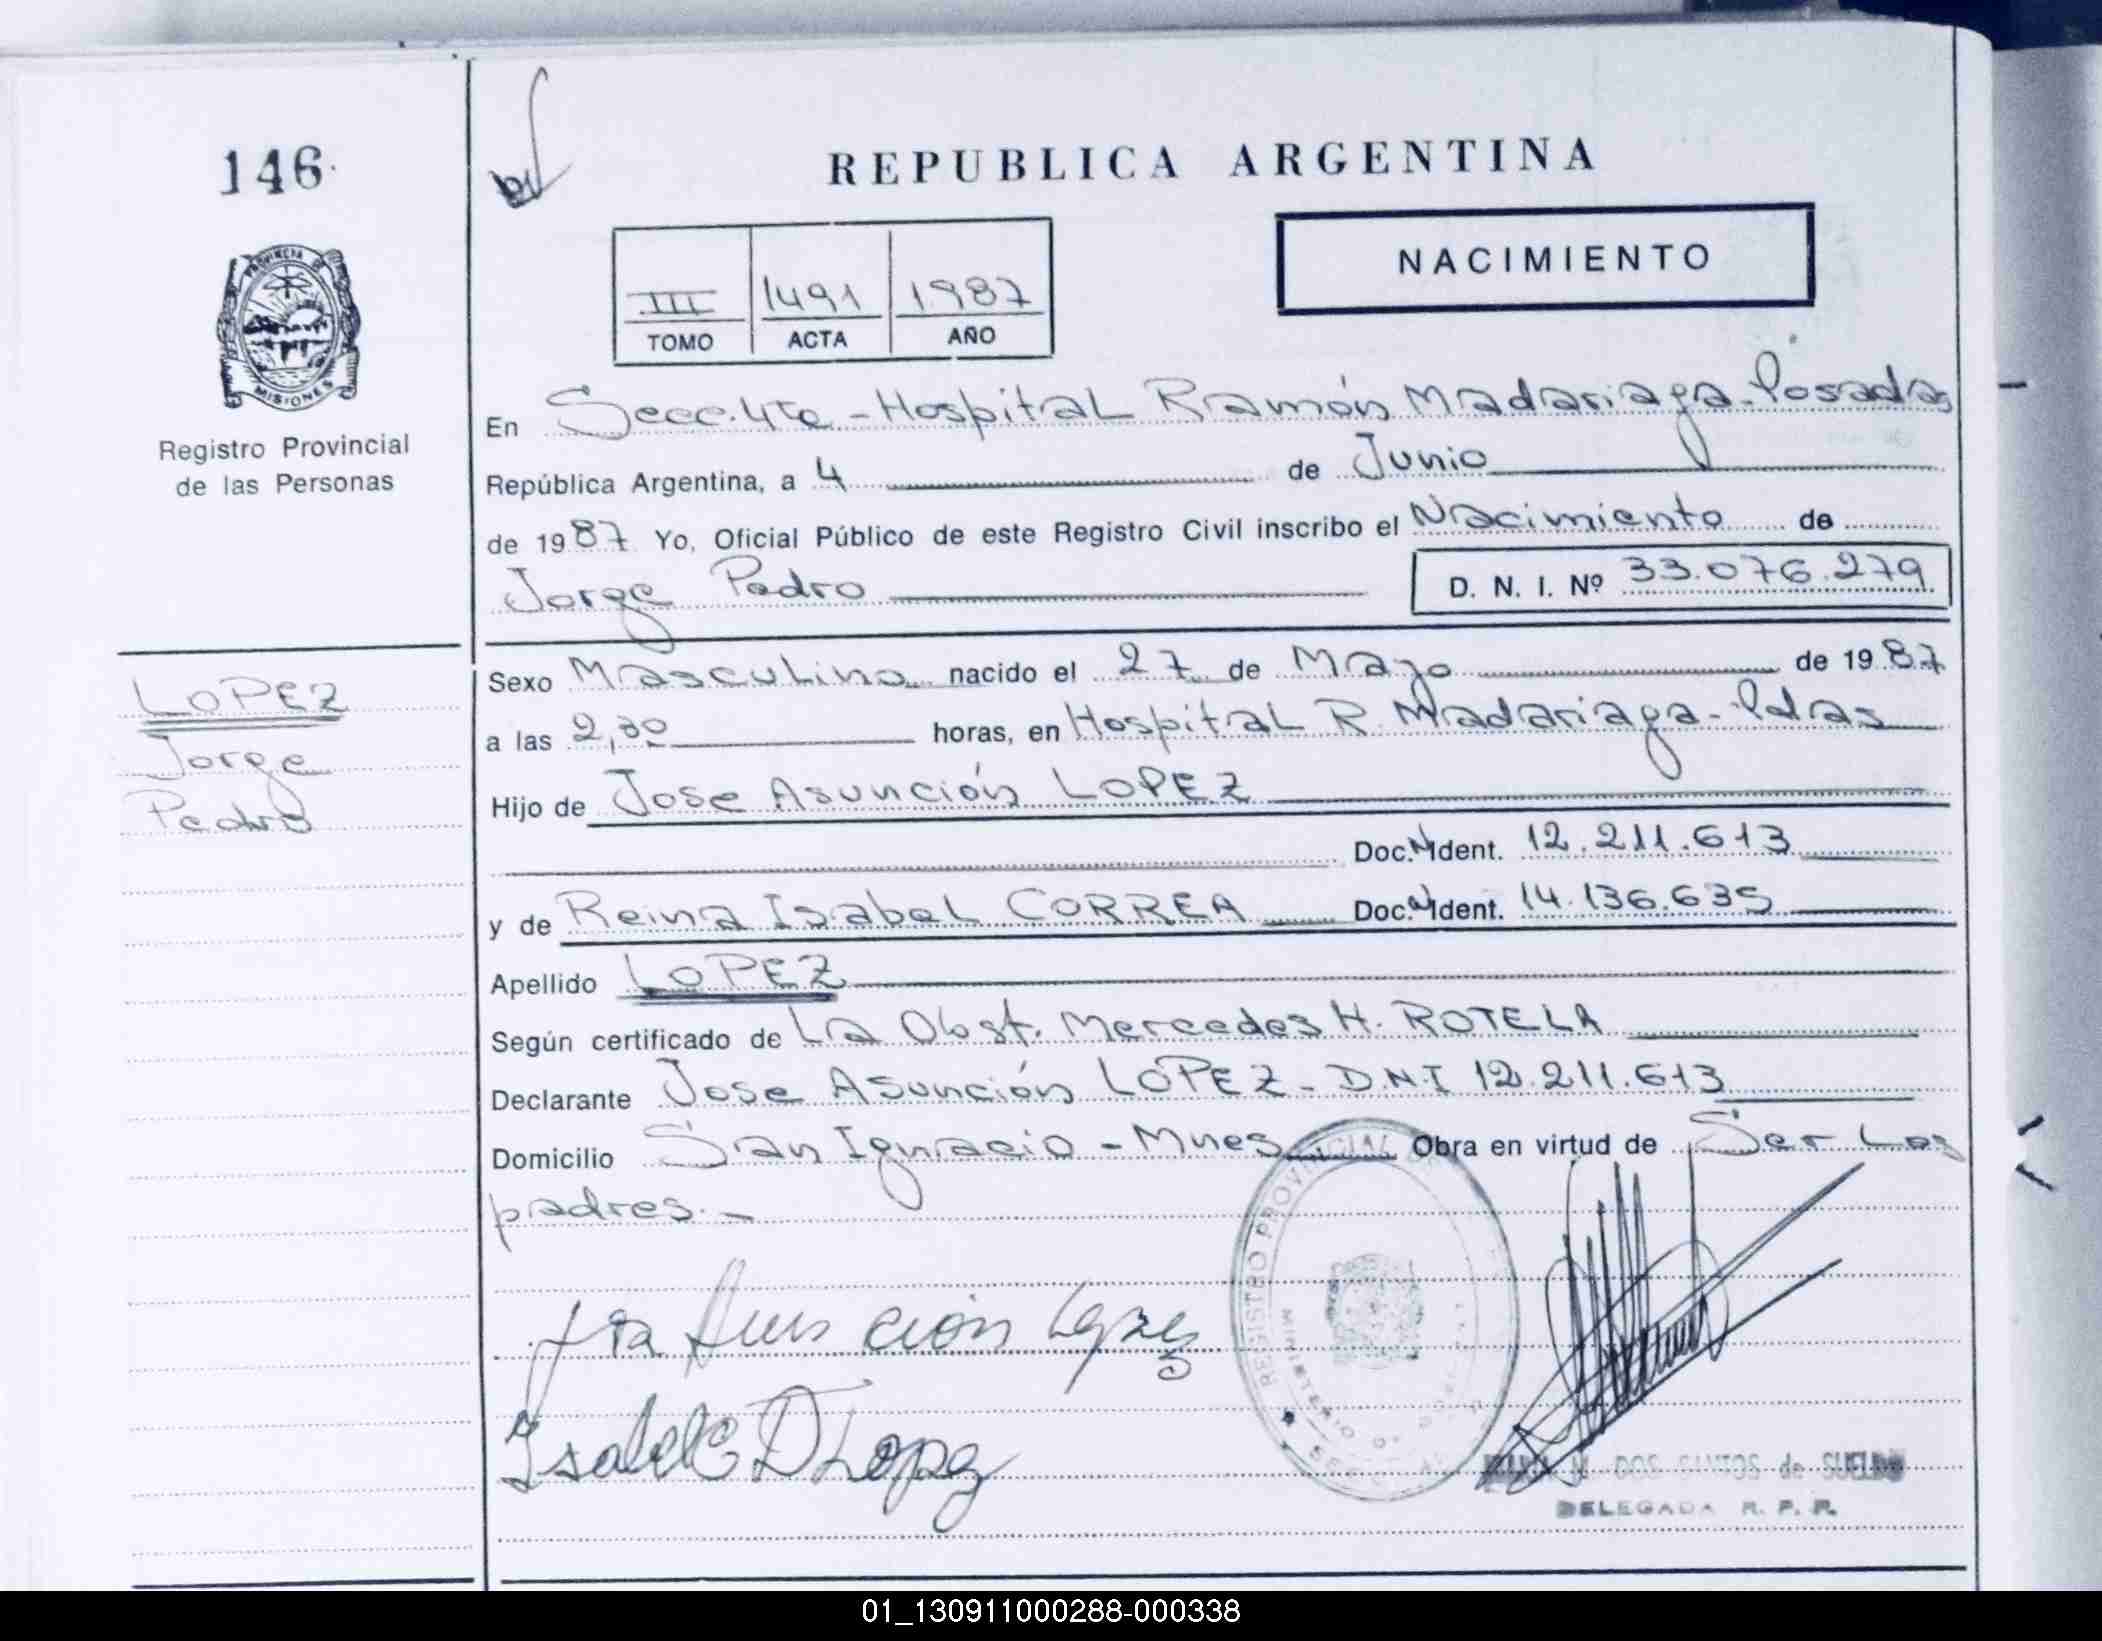 146
REPUBLICA ARGENTINA
NACIMIENTO
III 1491 1987
TOMO ACTA AÑO
PROVINCIA DE
MISIONES
Registro Provincial
de las Personas
En Secc. 4ta - Hospital Ramón Madariaga - Posadas
República Argentina, a 4 de Junio
de 1987 Yo, Oficial Público de este Registro Civil inscribo el Nacimiento de
Jorge Pedro D. N. I. Nº 33.076.279
LOPEZ
Jorge
Pedro
Sexo Masculino nacido el 27 de Mayo de 1987
a las 2,30 horas, en Hospital R. Madariaga - Pdas
Hijo de Jose Asunción LOPEZ
Doc. N Ident. 12.211.613
y de Reina Isabel CORREA Doc. N Ident. 14.136.635
Apellido LOPEZ
Según certificado de La Obst. Mercedes H. ROTELA
Declarante Jose Asunción LOPEZ - D.N.I 12.211.613
Domicilio San Ignacio - Mnes Obra en virtud de Ser Los
padres. -
REGISTRO PROVINCIAL
MINISTERIO
Asunción Lopez
Isabel C D Lopez
DOS SANTOS de SUELDO
DELEGADA R. P. P.
01_130911000288-000338